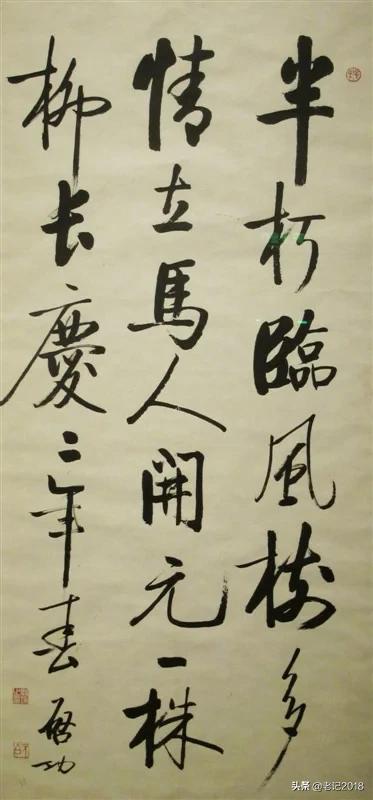 半朽臨風樹多
情立馬人開元一株
柳長慶二年春 啓功
头条 @老记2018